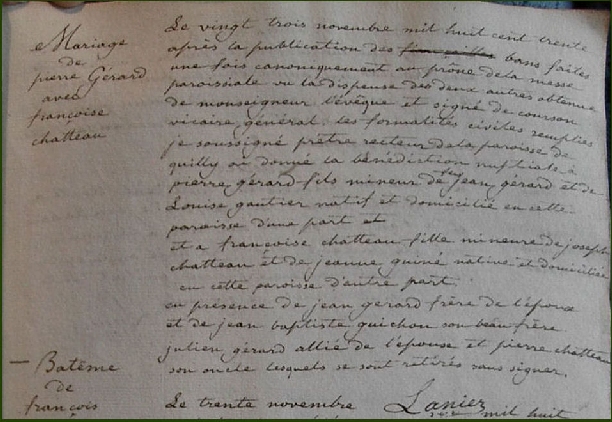 e Mariage
de
pierre Gérard
avec
françoise
chatteau
Le vingt trois novembre mil huit cent trente
après la publication des fiançailles bans faites
une fois canoniquement au prône de la messe
paroissiale vu la dispense des deux autres obtenue
de monseigneur l'évêque et signé de courson
vicaire général. les formalités civiles remplies
je soussigné prêtre recteur de la paroisse de
quilly ai donné la bénédiction nuptiale à
pierre gérard fils mineur de feu jean gérard et de
Louise gautier natif et domicilié en cette
paroisse d'une part et
et a françoise chatteau fille mineure de joseph
chatteau et de jeanne guiné native et domiciliée
en cette paroisse d'autre part.
en présence de jean gerard frère de l'époux
et de jean baptiste guichon son beau frère
julien gérard allié de l'épouse et pierre chatteau
son oncle lesquels se sont retirés sans signer.
Lanier
Batême
de
françois
Le trente novembre mil huit